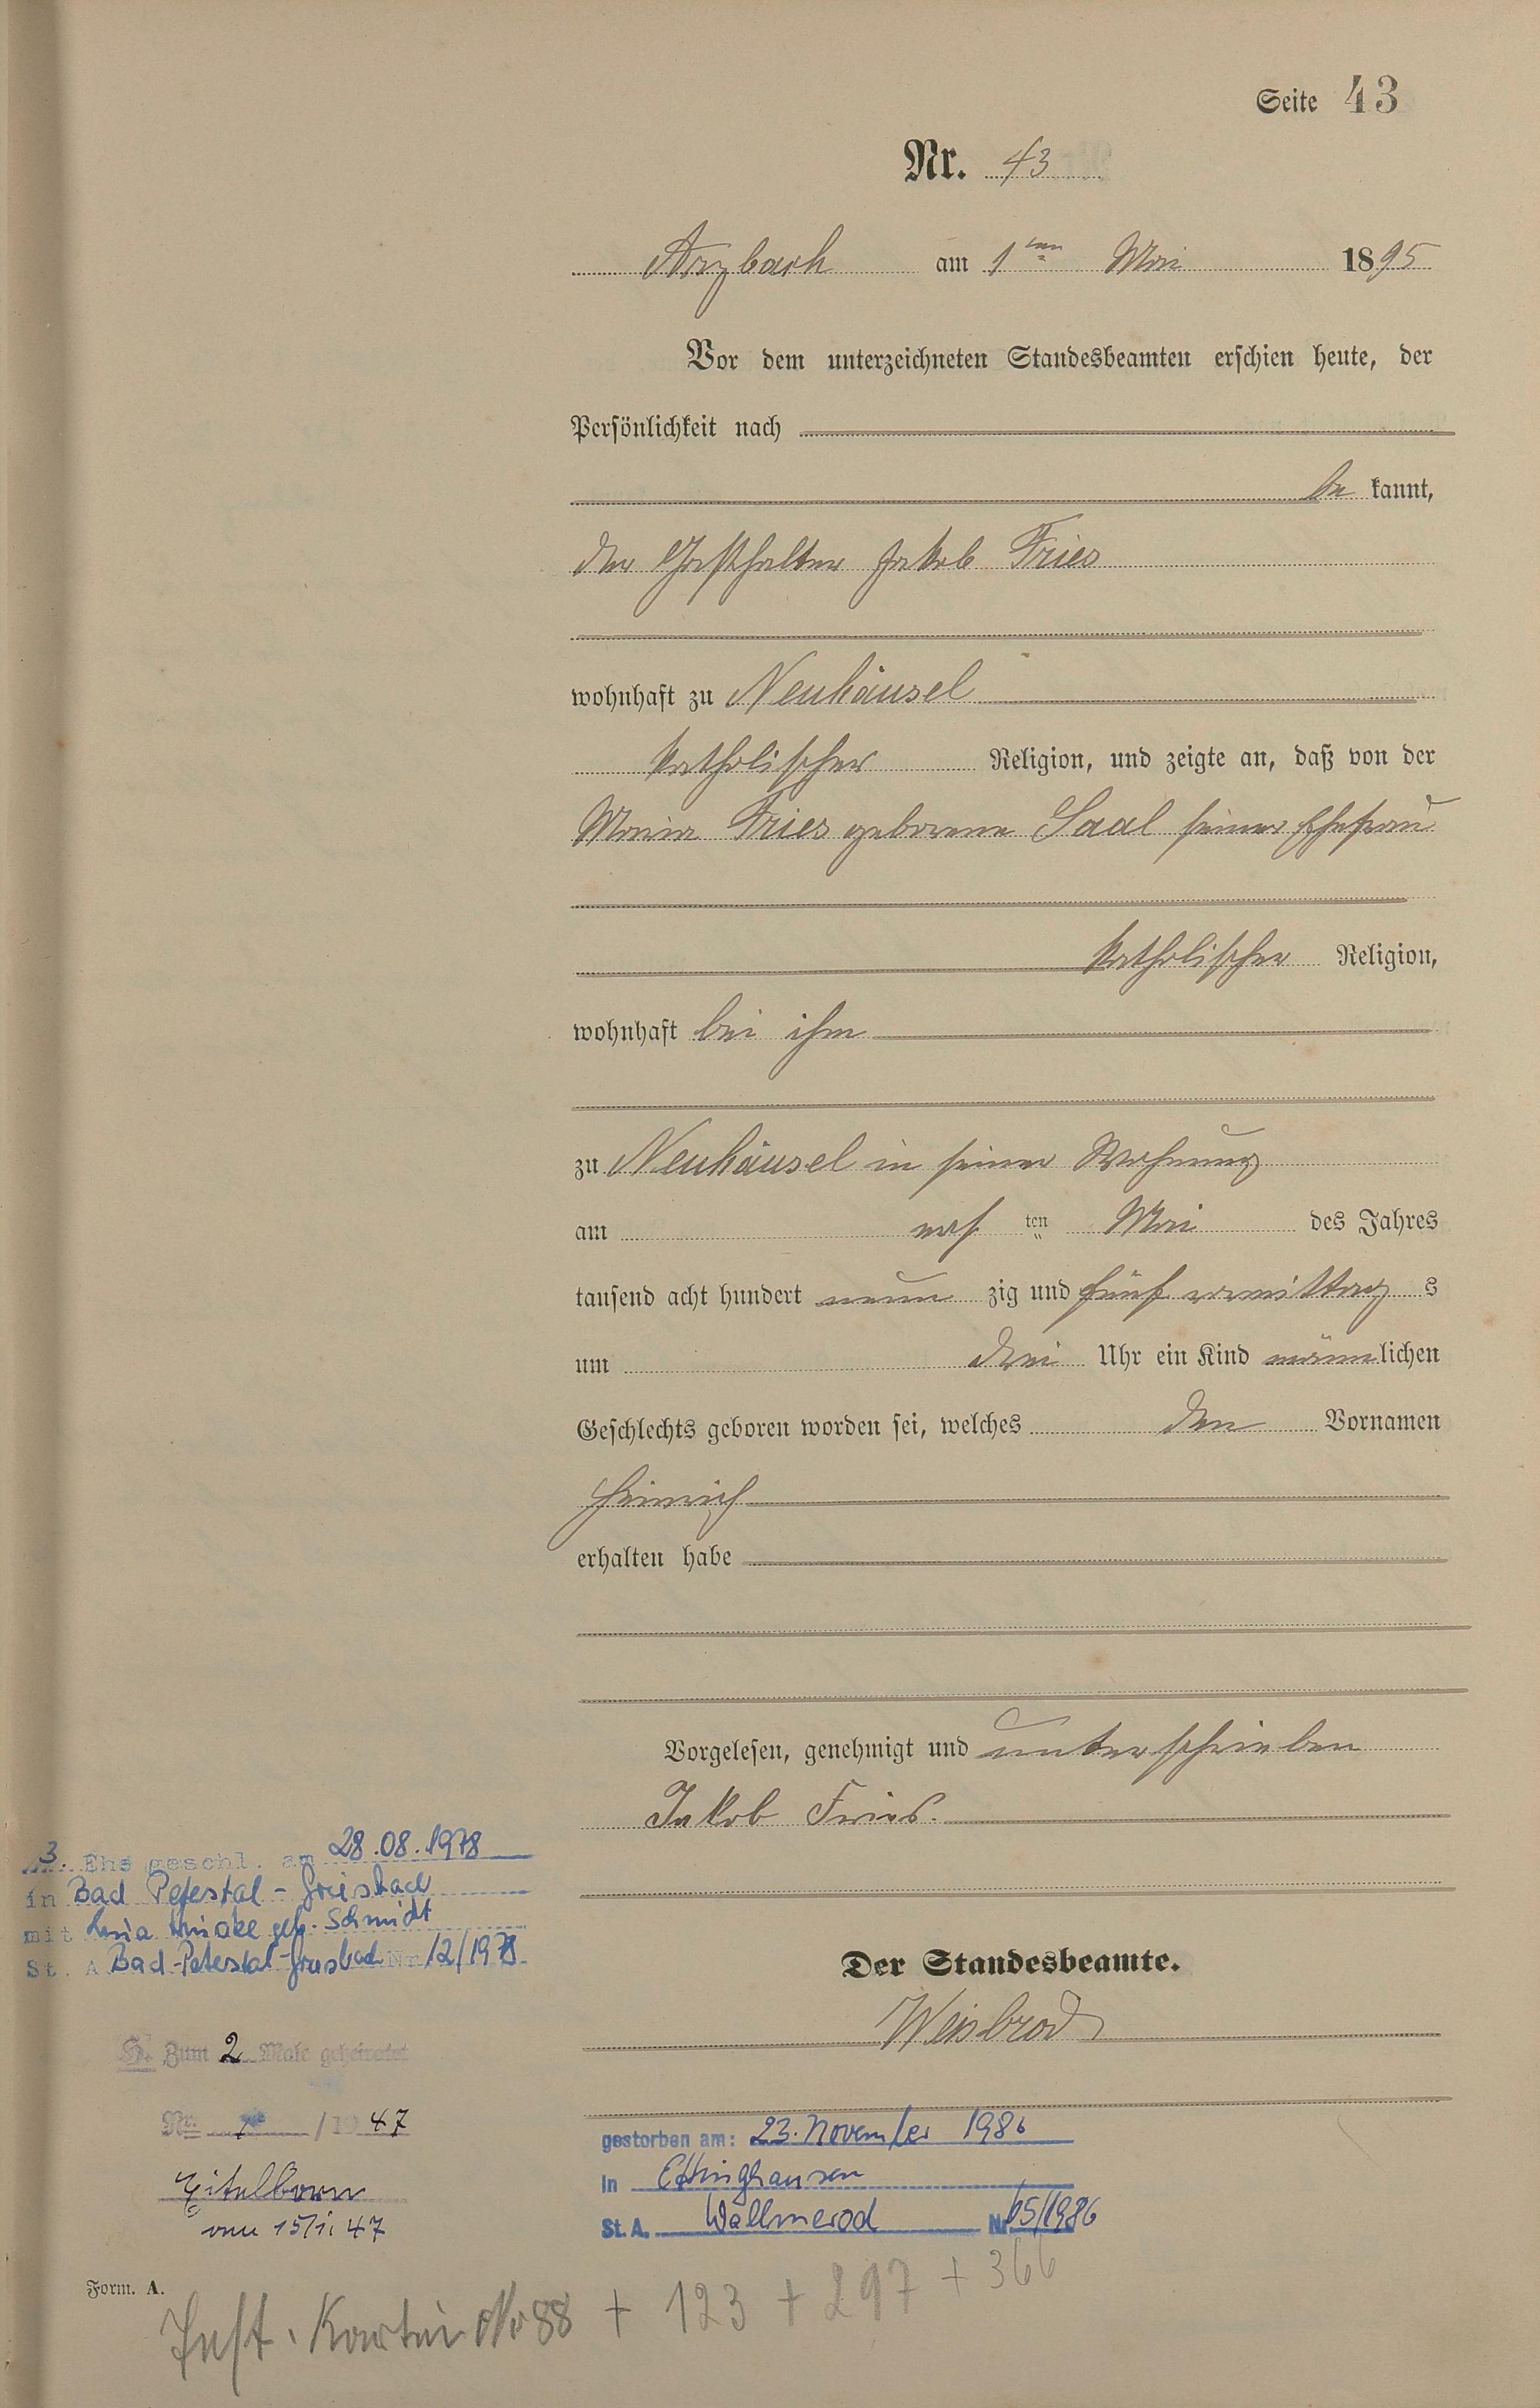 Seite 43
Nr. 43
Arzbach am 1ten Mai 1895
Vor dem unterzeichneten Standesbeamten erschien heute, der
Persönlichkeit nach
be kannt,
der Gasthalter Jakob Fries
wohnhaft zu Neuhäusel
katholischer Religion, und zeigte an, daß von der
Maria Fries geborene Saal seiner Ehefrau
katholischer Religion,
wohnhaft bei ihm
zu Neuhäusel in seiner Wohnung
am ten Mai des Jahres
tausend acht hundert neun zig und fünf vormittag s
um drei Uhr ein Kind männlichen
Geschlechts geboren worden sei, welches den Vornamen
Heinrich
erhalten habe
Vorgelesen, genehmigt und unterschrieben
Jakob Fries.
Der Standesbeamte.
Weisbrod
3. Ehe geschl. am 28.08.1978
in Bad Petestal - Griesbach
mit geb. Schmidt
St. A. Bad-Peterstal-Griesbach Nr. 12/1978
H. Zum 2 Male geheiratet
Nr. /1947
Eitelborn
vom 15/1. 47
gestorben am: 23. November 1986
in Ettinghausen
St. A. Wallmerod Nr. 65/1986
Form. A.
Inst. Nr 88 + 123 + 297 + 366